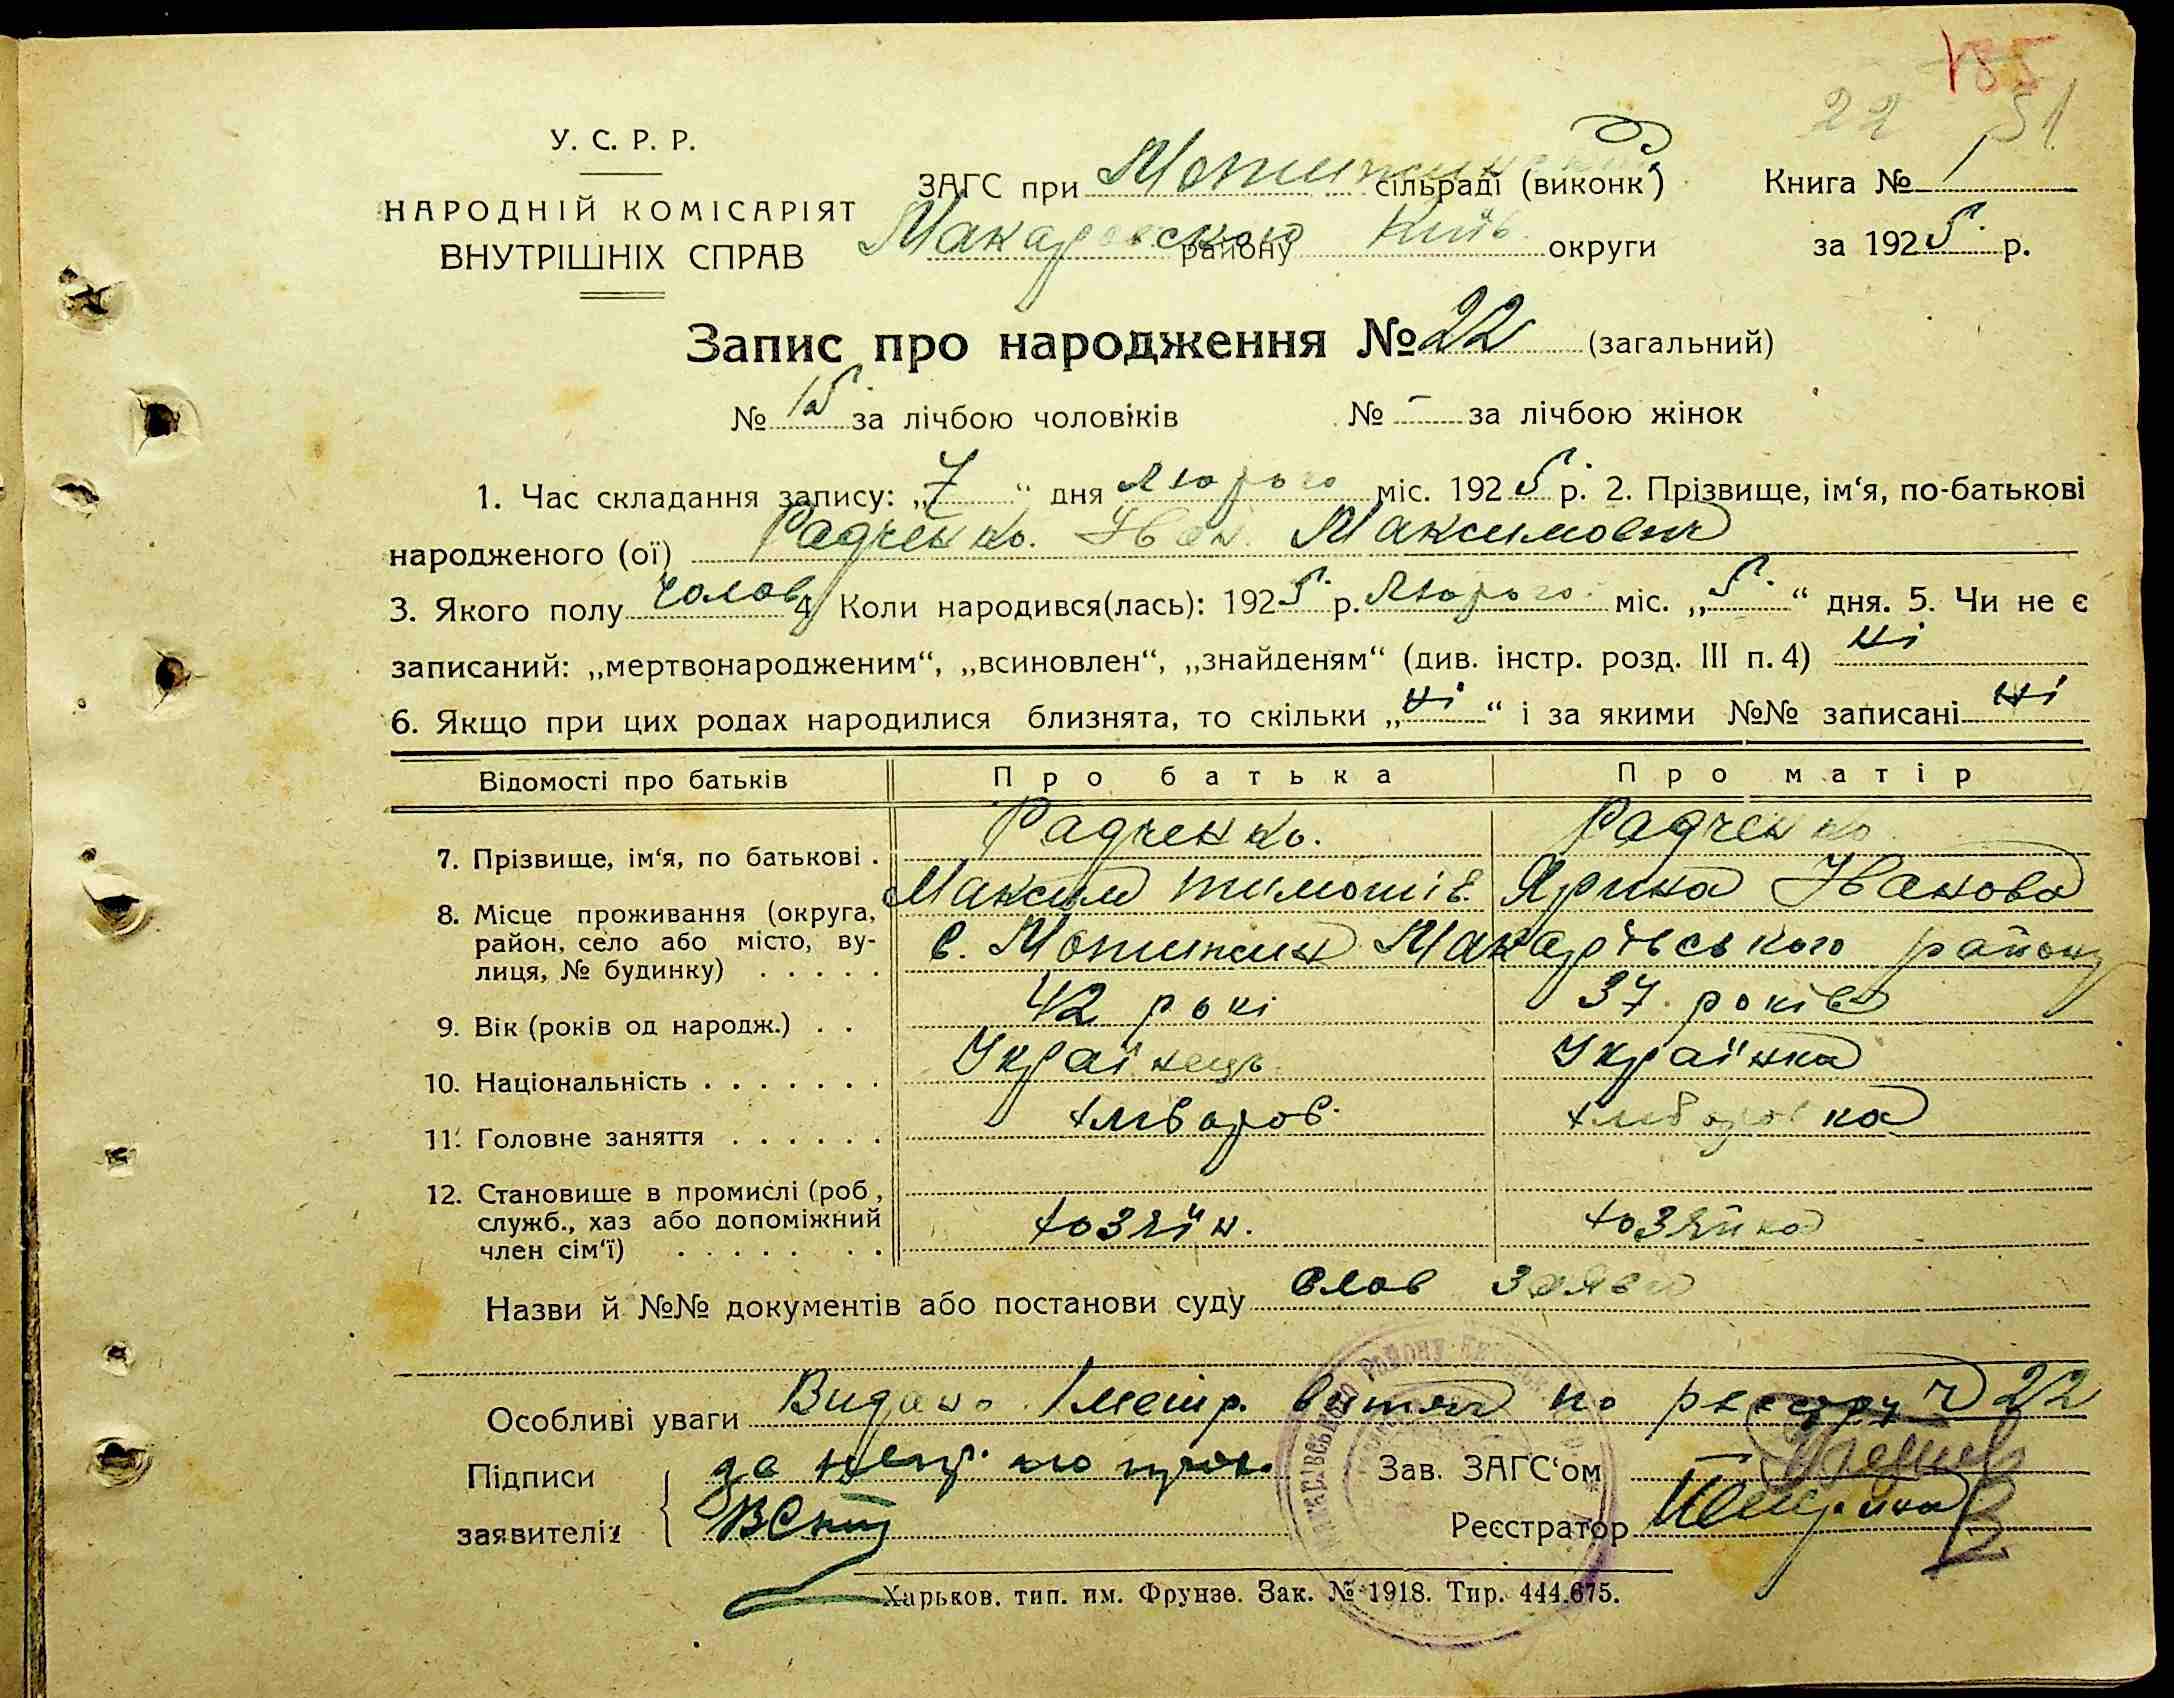 185
22 51
У. С. Р. Р.
НАРОДНІЙ КОМІСАРІЯТ
ВНУТРІШНІХ СПРАВ
ЗАГС при Мотижинській сільраді (виконк.)
Макаровского району Київ. округи
Книга № 1
за 1925 р.
Запис про народження № 22 (загальний)
№ 15 за лічбою чоловіків № - за лічбою жінок
1. Час складання запису: „7“ дня Лютого міс. 1925 р. 2. Прізвище, ім‘я, по-батькові
народженого (ої) Радченко Іван Максимович
3. Якого полу чолов 4. Коли народився(лась): 1925 р. Лютого міс. „5“ дня. 5. Чи не є
записаний: „мертвонародженим“, „всиновлен“, „знайденям“ (див. інстр. розд. III п. 4) ні
6. Якщо при цих родах народилися близнята, то скільки „ні“ і за якими №№ записані ні
Відомості про батьків Про батька Про матір
7. Прізвище, ім‘я, по батькові . Радченко. Радченко
Максим Тимошів. Ярина Іванова
8. Місце проживання (округа,
район, село або місто, ву-
лиця, № будинку) . . . . .
с. Мотижин Макарівського району
9. Вік (років од народж.) . . 42 рокі 37 років
10. Національність . . . . . . . Українець Українка
11. Головне заняття . . . . . . хлібороб. хліборобка
12. Становище в промислі (роб.,
служб., хаз або допоміжний
член сім‘ї) . . . . . . .
хозяїн. хозяйка
Назви й №№ документів або постанови суду слов заява
Особливі уваги Видано метр. витяг по реєстру Ч 22
Підписи
заявителів
за непр.
Зав. ЗАГС‘ом
Реєстратор
Харьков. тип. им. Фрунзе. Зак. № 1918. Тир. 444.675.